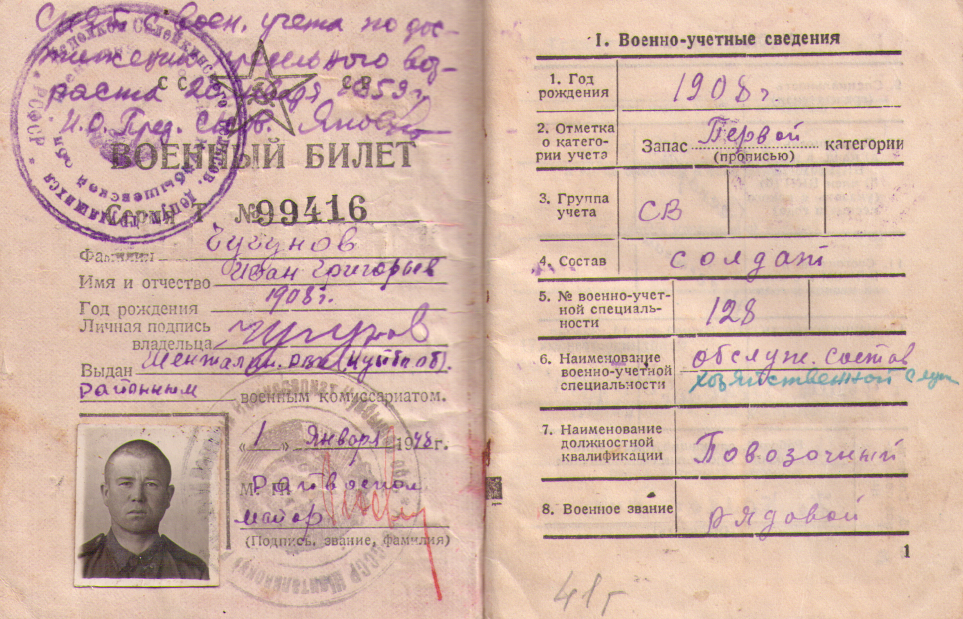 Снят с воен. учета по дос-
тижению предельного воз-
раста 1959 г.
И.О. Пред.
СССР
ВОЕННЫЙ БИЛЕТ
Серия Т №99416
Фамилия Чугунов
Имя и отчество Иван Григорьев
Год рождения 1908 г.
Личная подпись
владельца Чугунов
Выдан
районным военным комиссариатом.
«1» Января 1948 г.
М. П. Райвоенком
майор
(Подпись, звание, фамилия)
I. Военно-учетные сведения
1. Год
рождения 1908 г.
2. Отметка
о катего-
рии учета Запас Первой категории
(прописью)
3. Группа
учета СВ
4. Состав солдат
5. № военно-учет-
ной специаль-
ности 128
6. Наименование
военно-учетной
специальности обслуж. состав
хозяйственной служ
7. Наименование
должностной
квалификации Повозочный
8. Военное звание рядовой
1
41 г